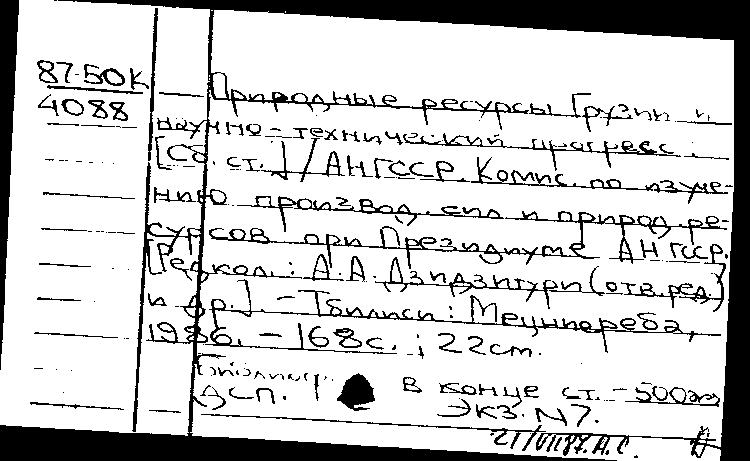 87-50К
4088
Природные ресурсы Грузии и
научно-технический прогресс:
[Сб. ст.] / АН ГССР. Комис. по изуче-
нию производ. сил и природ. ре-
сурсов при Президиуме АН ГССР.
[Редкол.: А.А. Дзидзигури (отв. ред.)
и др.]. - Тбилиси: Мецниереба,
1986. - 168с.; 22см.
Библиогр. в конце ст. - 500
ДСП. Экз. N7.
21/VII87. А.С.